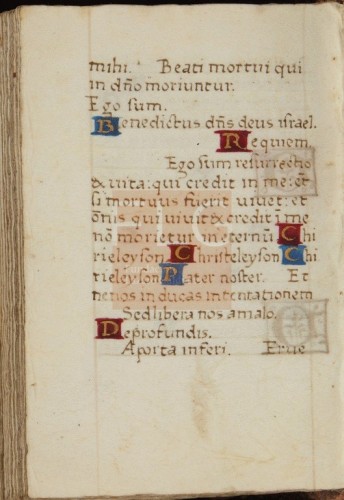 mihi. Beati mortui qui
in dño moriuntur.
Ego sum.
Benedictus dñs deus israel.
Requiem
Ego sum resurrectio
& vita: qui credit in me: et̃
si mortuus fuerit vivet: et
om̃is qui vivit & credit ĩ me
nõ morietur in eternũ Chi
rieleyson Christeleyson Chi
rieleyson Pater noster. Et
nenos in ducas intentationem
Sed libera nos amalo.
De profundis.
A porta inferi. Erue